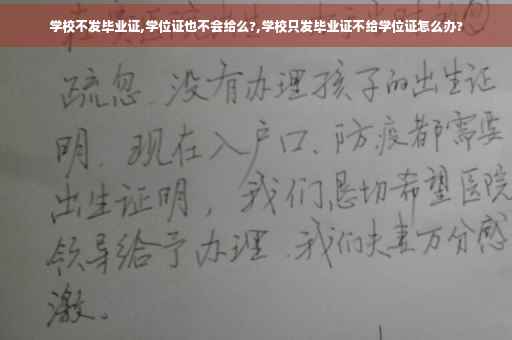 学校不发毕业证,学位证也不会给么?,学校只发毕业证不给学位证怎么办?
疏忽、没有办理孩子的出生证
明、现在入户口、防疫都需要
出生证明，我们恳切希望医院
领导给予办理、我们夫妻万分感
激。